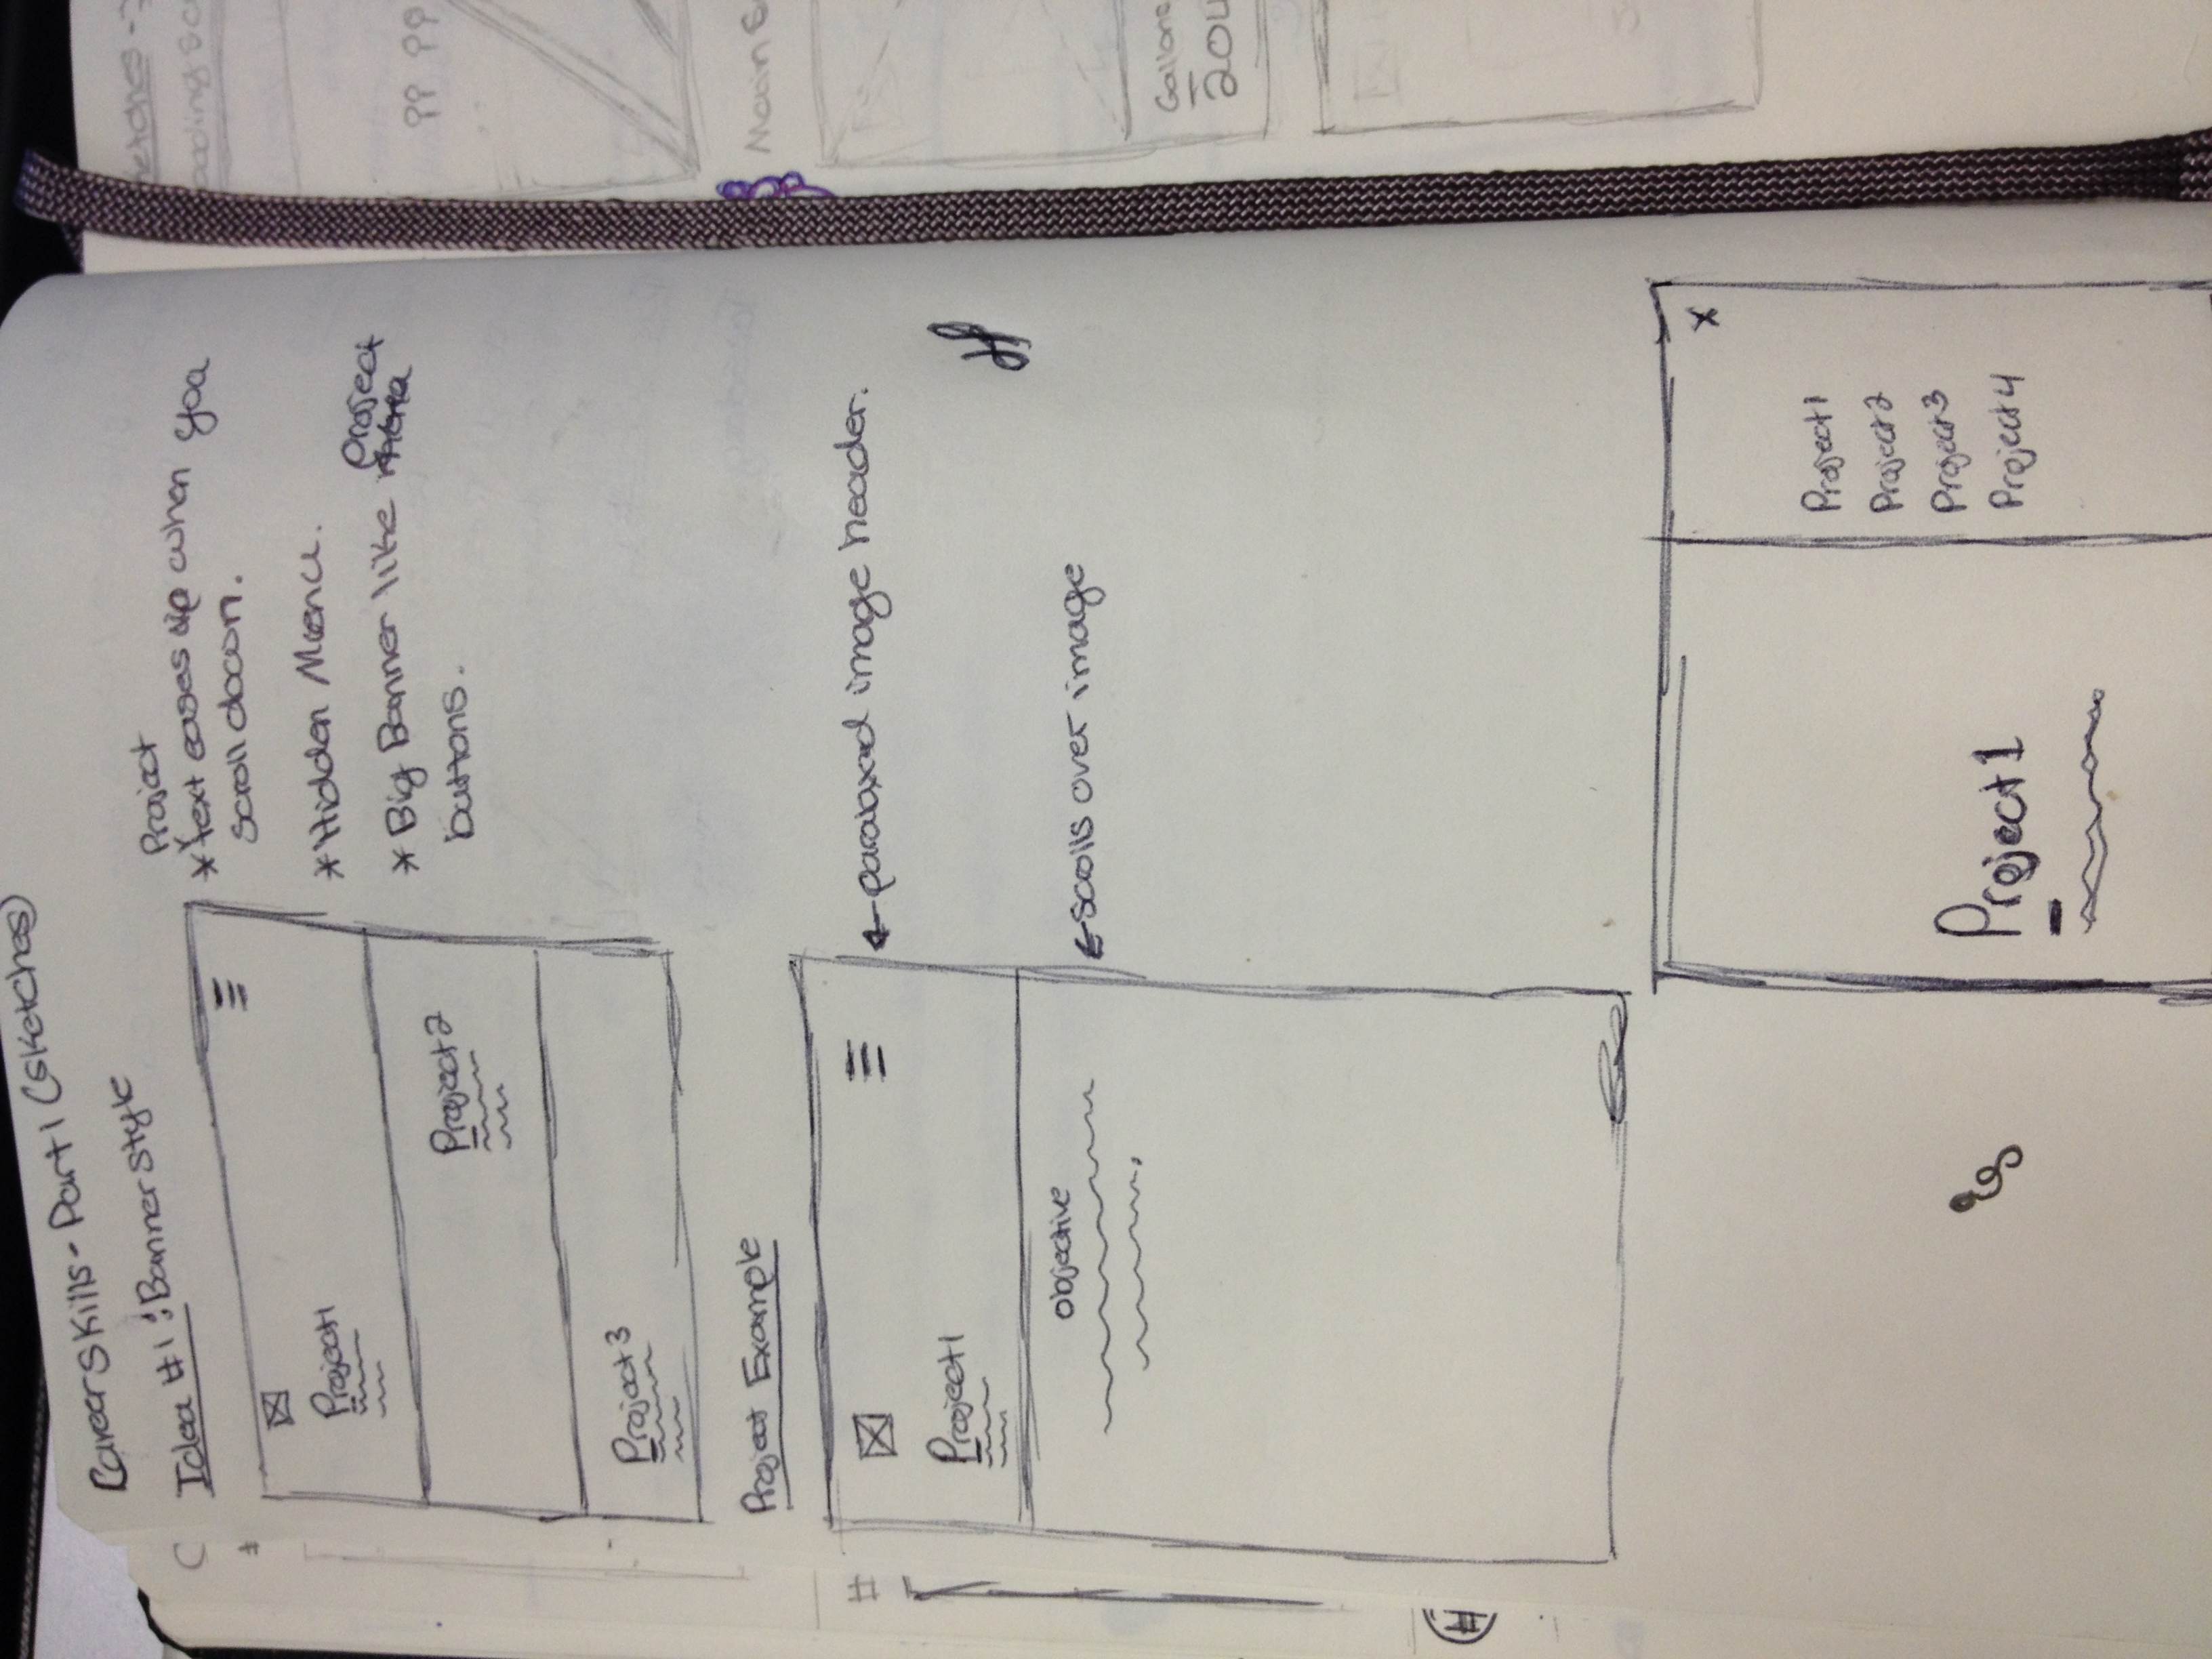 Career Skills - Part 1 (Sketches)
Idea #1: Banner Style
Project1
Project2
Project3
Project
* text eases up when you
scroll down.
* Hidden Menu.
project
* Big Banner like
buttons.
Project Example
Project1
objective
← scrolls over image
image header.
X
Project1
Project2
Project3
Project4
Project1
#
Main
Gallons